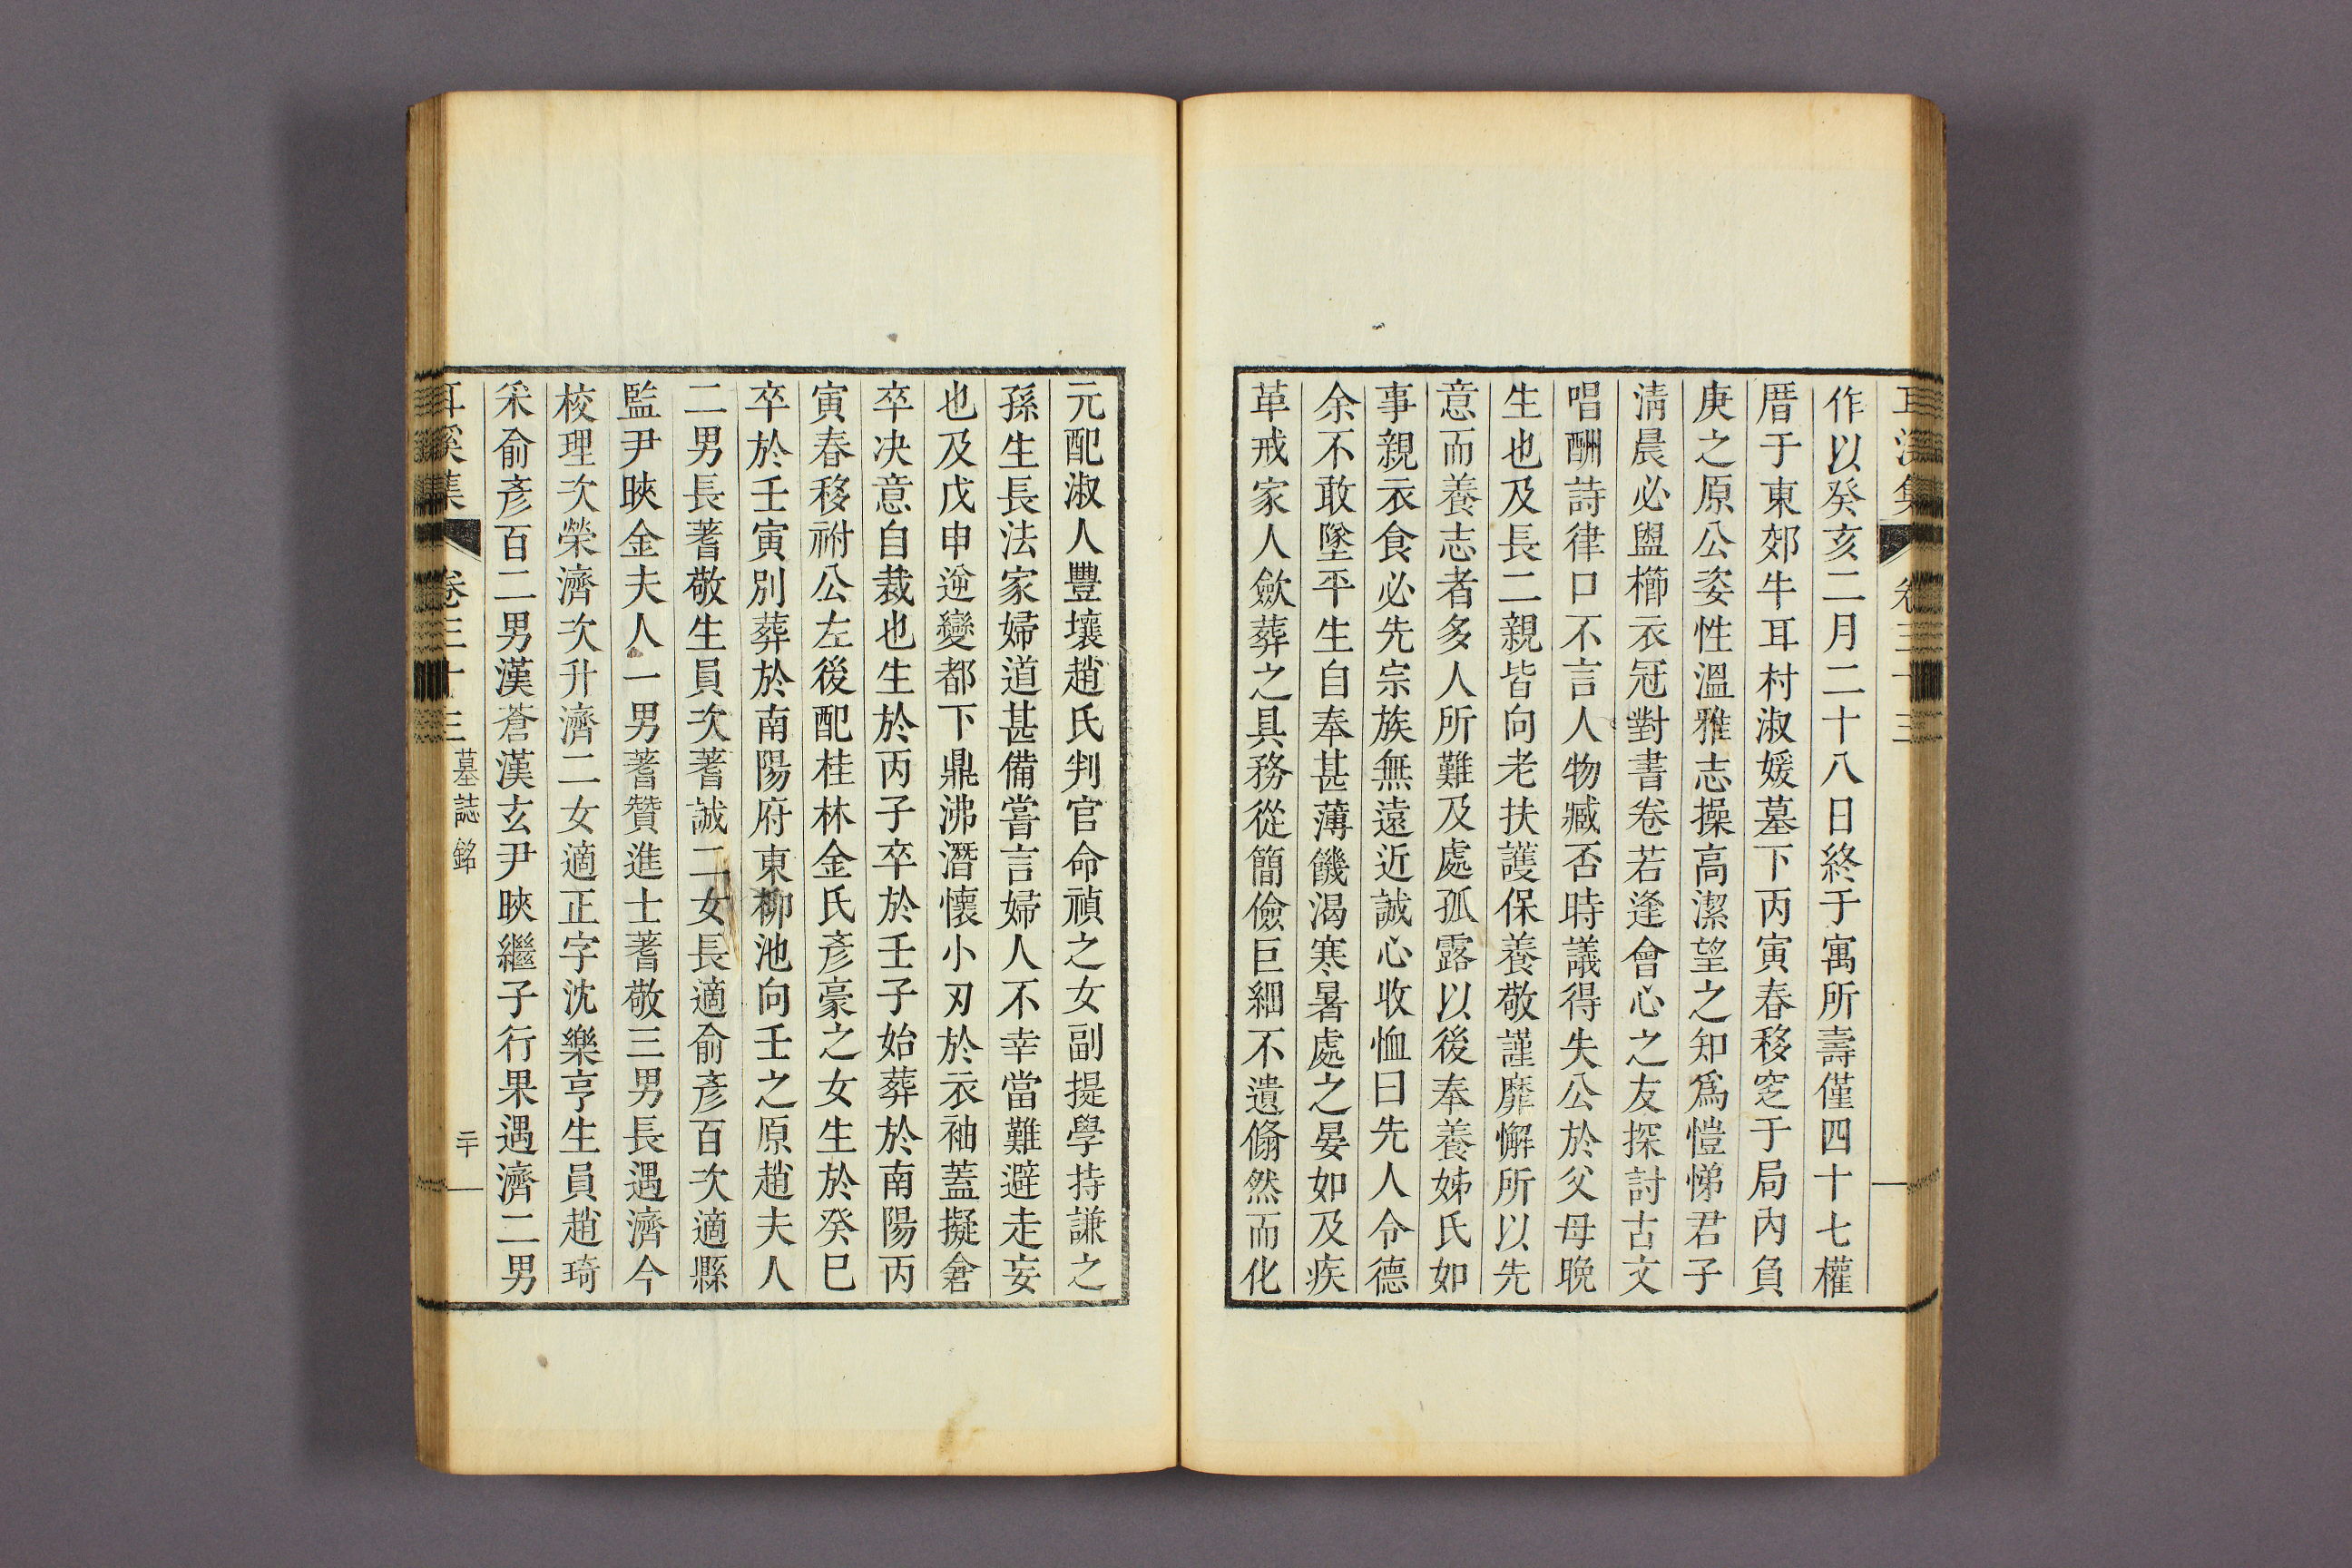 作以癸亥二月二十八日終于寓所壽僅四十七權
厝于東郊牛耳村淑媛墓下丙寅春移窆于局內負
庚之原公姿性溫雅志操高潔望之知爲愷悌君子
淸晨必盥櫛衣冠對書卷若逢會心之友探討古文
唱酬詩律口不言人物臧否時議得失公於父母晩
生也及長二親皆向老扶護保養敬謹靡懈所以先
意而養志者多人所難及處孤露以後奉養姊氏如
事親衣食必先宗族無遠近誠心收恤曰先人令德
余不敢墜平生自奉甚薄饑渴寒暑處之晏如及疾
革戒家人斂葬之具務從簡儉巨細不遺翛然而化
元配淑人豐壤趙氏判官命禎之女副提學持謙之
孫生長法家婦道甚備嘗言婦人不幸當難避走妄
也及戊申逆變都下鼎沸潛懷小刃於衣袖蓋擬倉
卒决意自裁也生於丙子卒於壬子始葬於南陽丙
寅春移祔公左後配桂林金氏彥豪之女生於癸巳
卒於壬寅別葬於南陽府東柳池向壬之原趙夫人
二男長蓍敬生員次蓍誠二女長適俞彥百次適縣
監尹㬂金夫人一男蓍贊進士蓍敬三男長遇濟今
校理次榮濟次升濟二女適正字沈樂亨生員趙琦
采俞彥百二男漢蒼漢玄尹㬂繼子行果遇濟二男
耳溪集 卷三十三 墓誌銘 二十